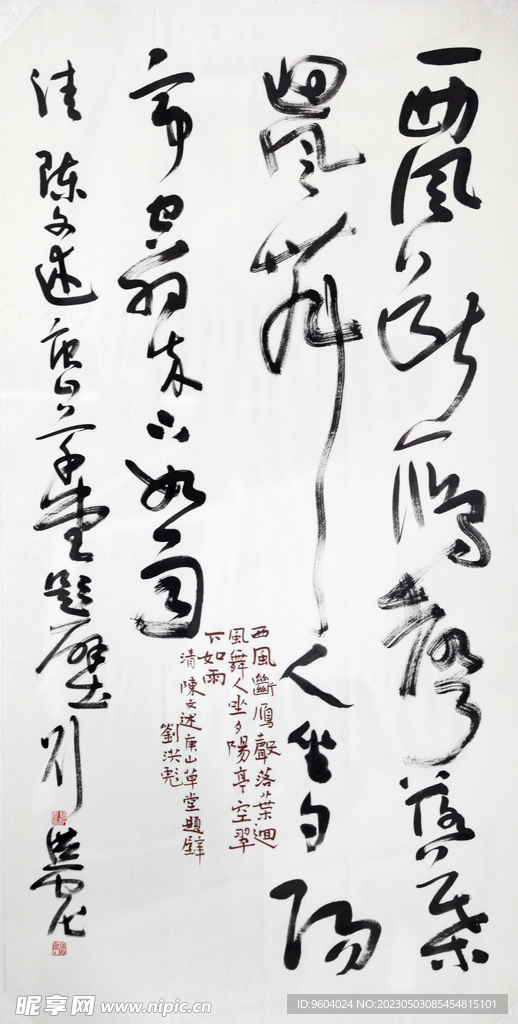 西風斷鴈聲落葉
迴風舞人坐夕陽
亭空翠下如雨
清陈文述庚山草堂題壁刘洪彪
西風斷鴈聲落葉迴
風舞人坐夕陽亭空翠
下如雨
清陳文述庚山草堂題壁
劉洪彪
昵享网 www.nipic.cn
ID:9604024 NO:20230503085454815101